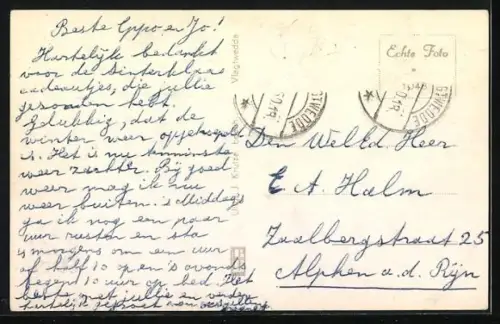 Beste Eppo en Jo!
Hartelijk bedankt
voor de Sinterklaas
cadeautjes, die jullie
gezonden hebt.
Gelukkig, dat de
winter weer opgekrapt
is. Het is nu tenminste
weer zachter. Bij goed
weer mag ik nu
weer buiten. 's Middags
ga ik nog een paar
uur rusten en sta
's morgens om een uur
of half 10 op en 's avonds
tegen 10 uur op bed. Het
beste met jullie en verder
hartelijk gegroet van
Vlagtwedde
Echte Foto
STWEDDE
STWEDDE
Den WelEd. Heer
E A Halm
Zaalbergstraat 25
Alphen a.d. Rijn